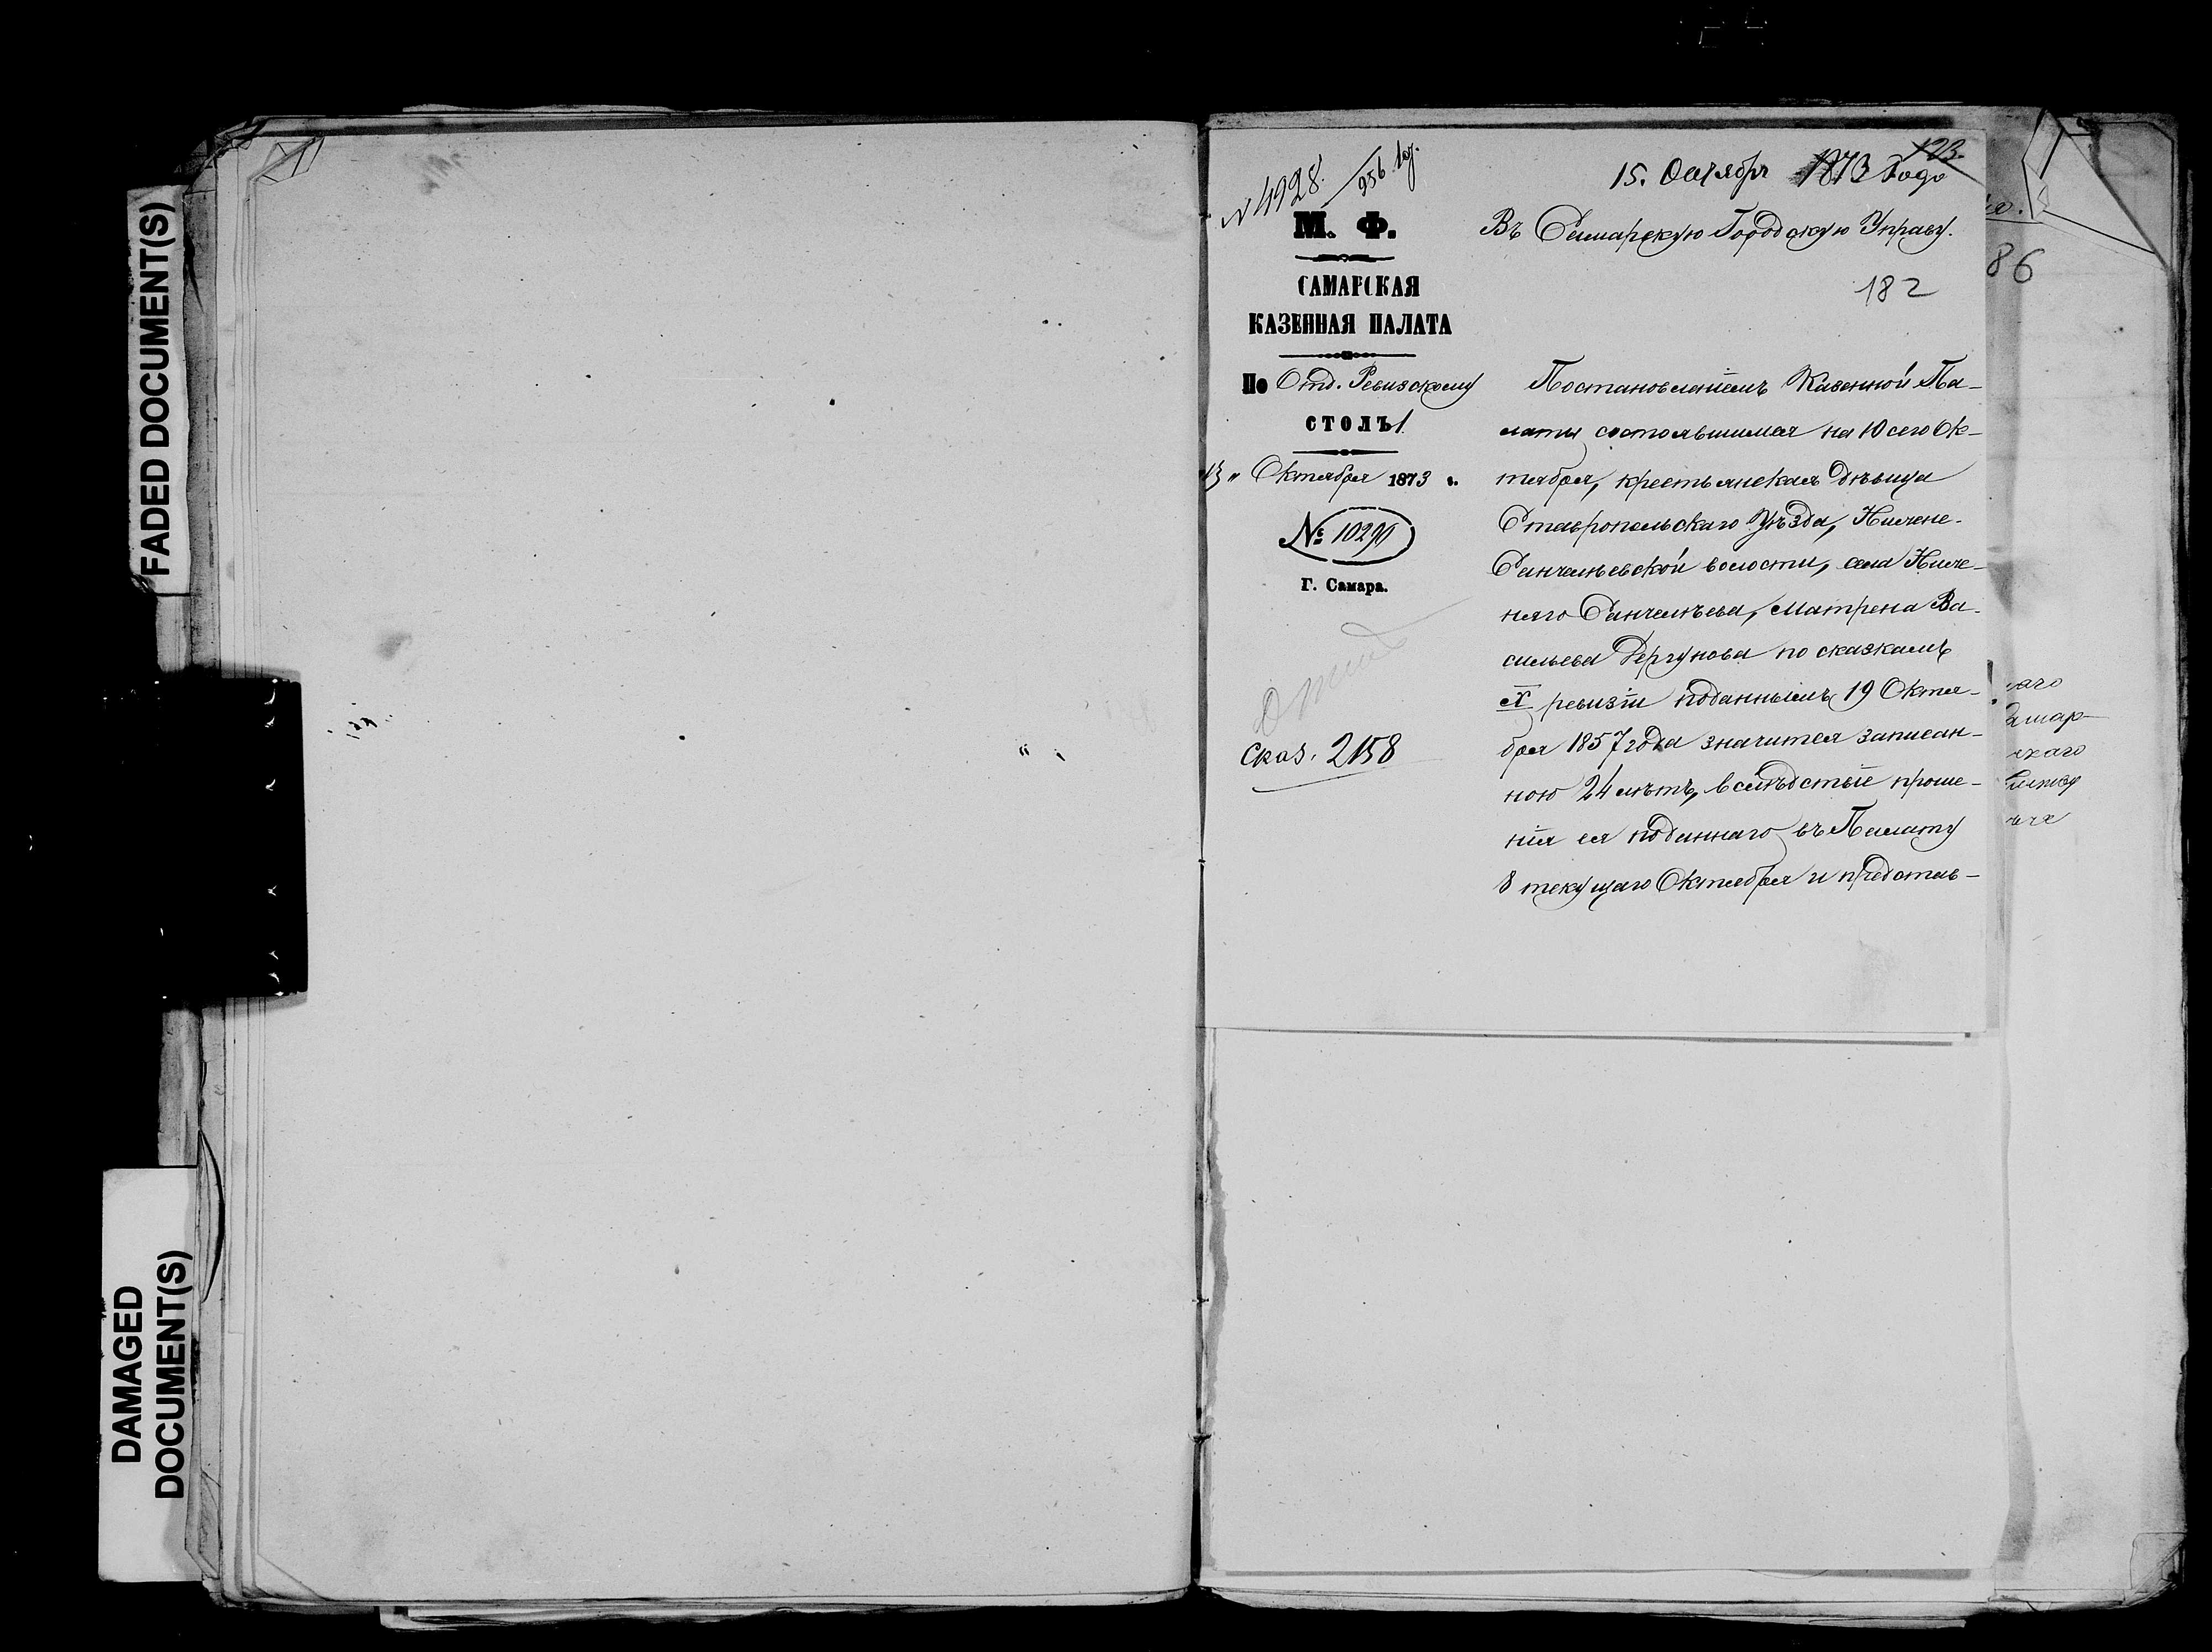 FADED DOCUMENT(S)
DAMAGED
DOCUMENT(S)
N 4928. 956 
15. Октябр 1873 Года
123.
М. Ф.
САМАРСКАЯ
КАЗЕННАЯ ПАЛАТА
По Отд. Ревизскому
СТОЛЪ 1
13 " Октября 1873 г.
№ 10290
Г. Самара.
Сказ. 2158
Въ Самарскую Городскую Управу.
182
Постановленіемъ Казенной Па-
латы состоявшимся на 10 сего Ок-
тября, крестьянская дѣвица
Ставропольскаго Уѣзда, Нижне-
Санчелѣевской волости, села Ниж-
няго Санчелѣева, Матрена Ва-
сильева Дергунова по сказкамъ
X ревизіи поданнымъ 19 Октя-
бря 1857 года значится записан-
ною 24 лѣтъ, вслѣдствіе проше-
нія ея поданнаго въ Палату
8 текущаго Октября и представ-
86